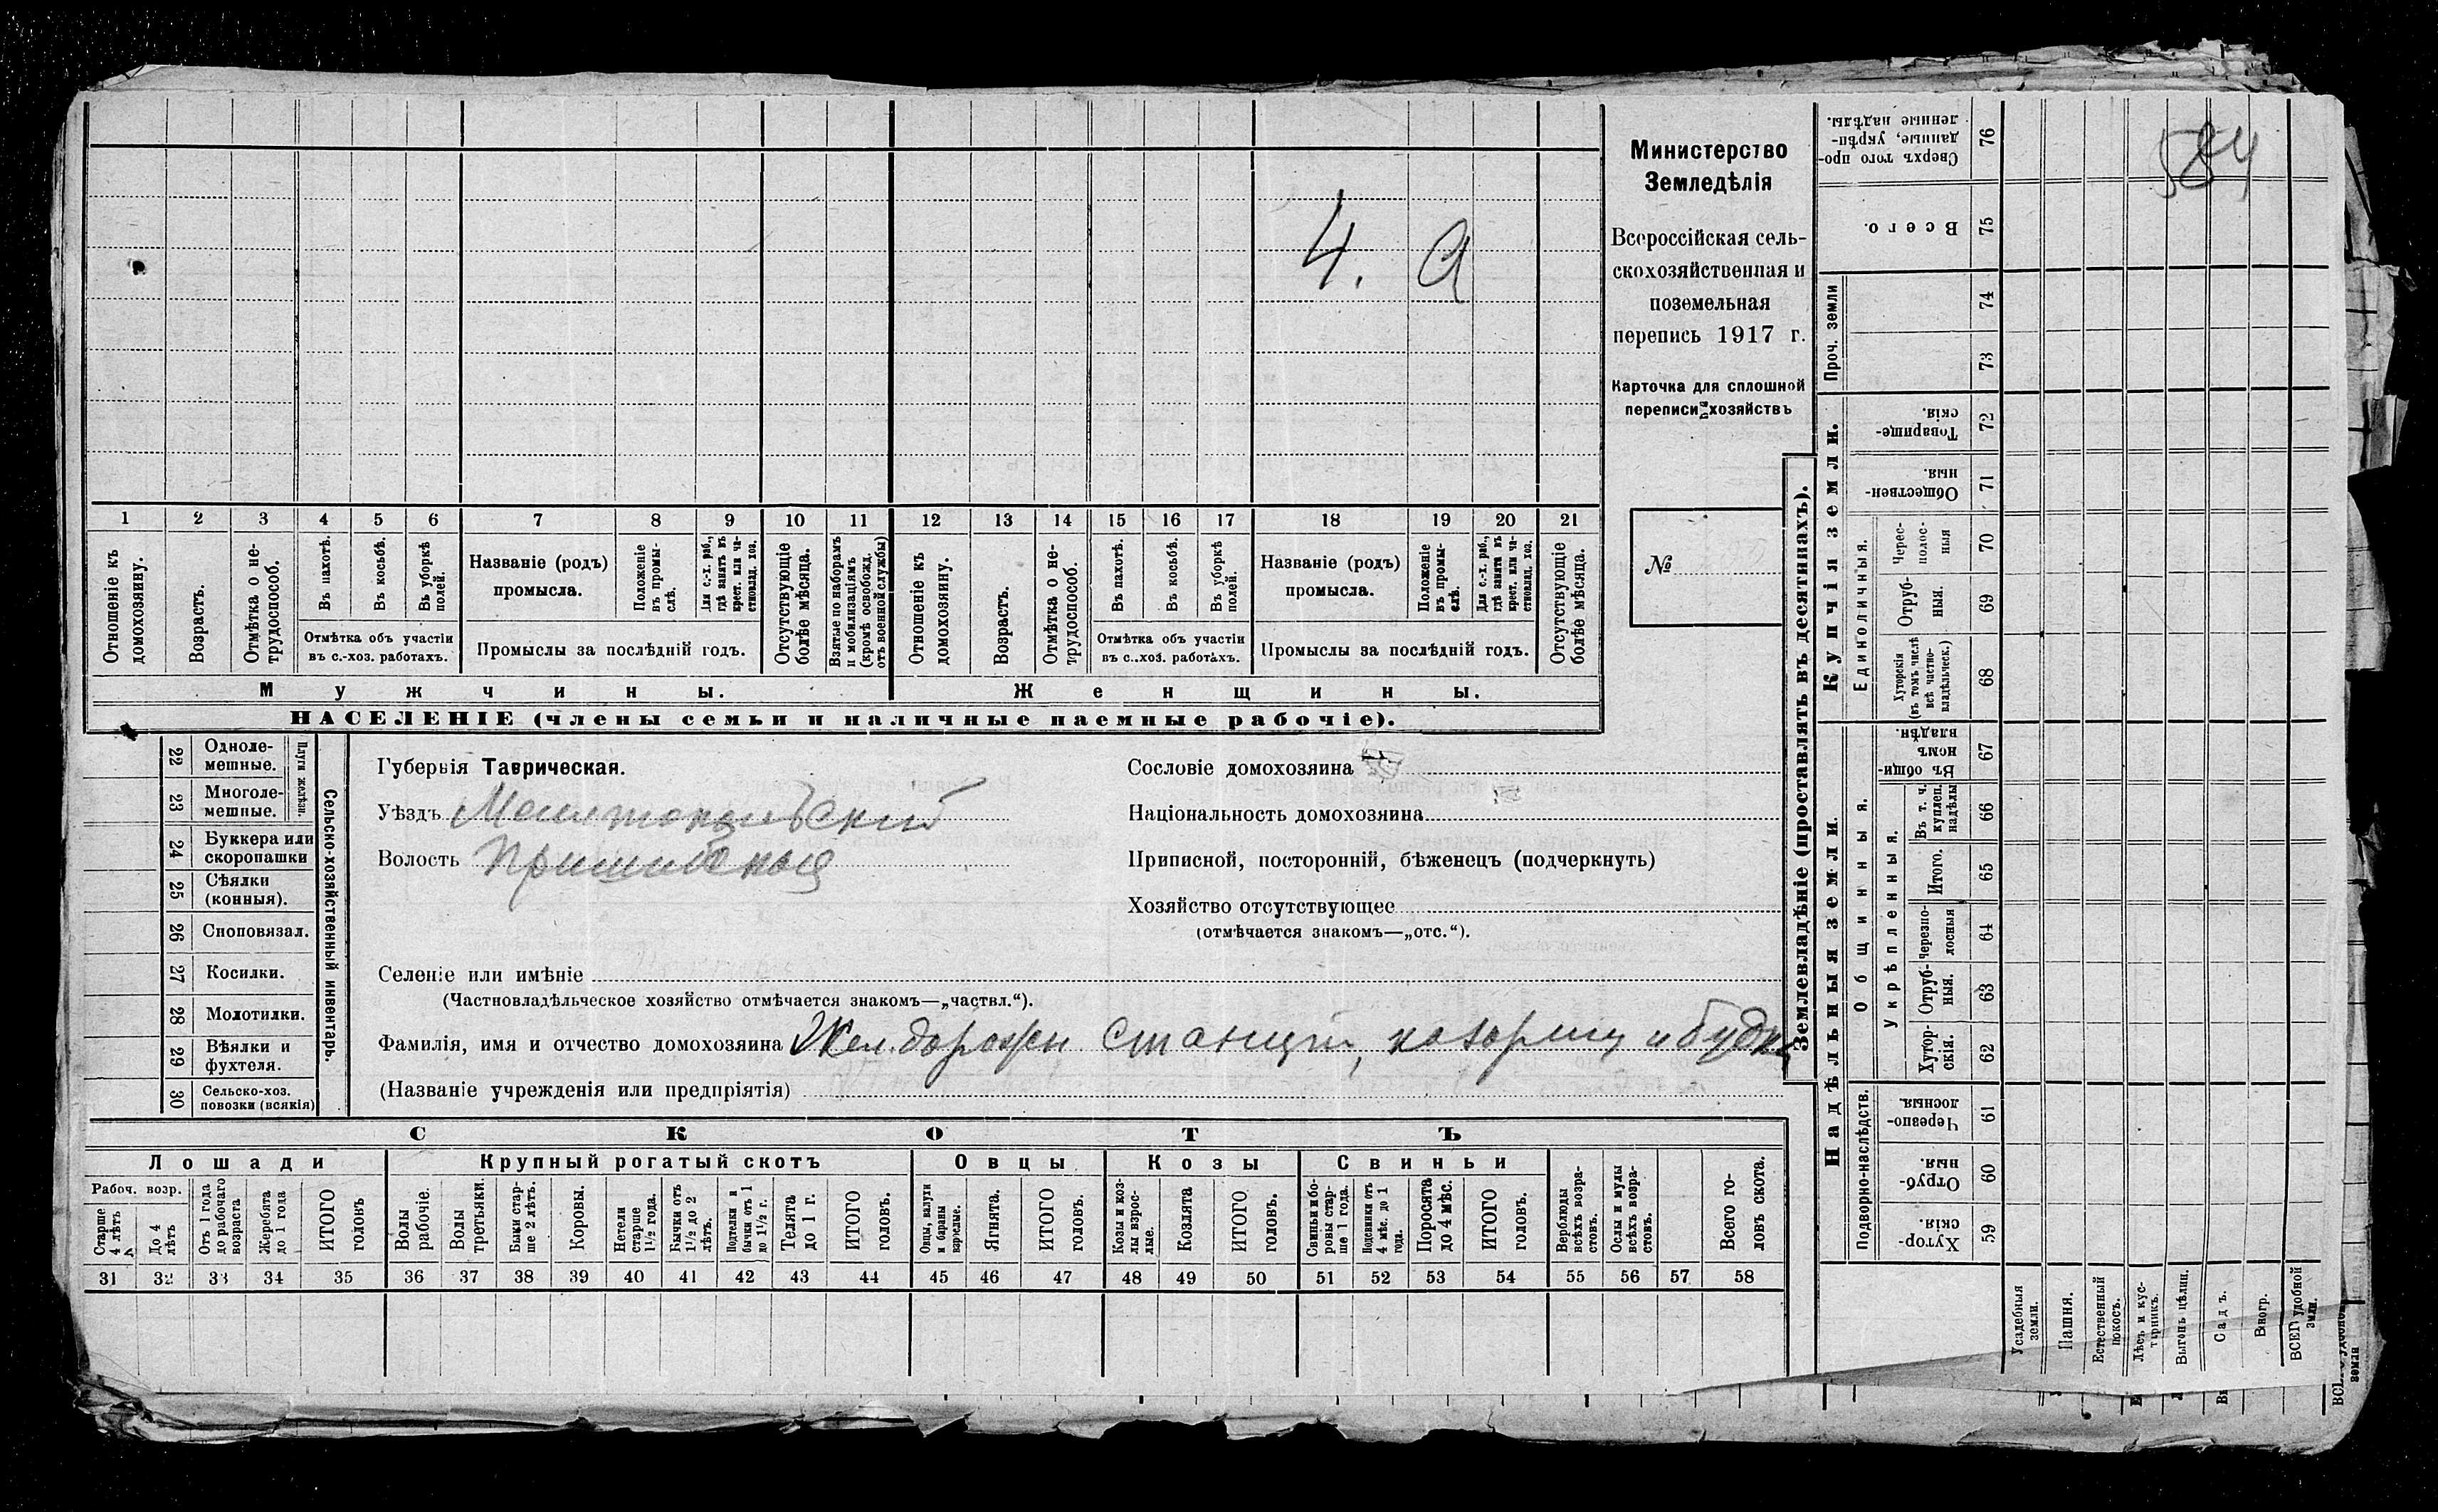 584
4. а
Министерство
Земледѣлія
Всероссійская сель-
скохозяйственная и
поземельная
перепись 1917 г.
Карточка для сплошной
переписи хозяйствъ
№
1 2 3 4 5 6 7 8 9 10 11 12 13 14 15 16 17 18 19 20 21
Отношеніе къ домохозяину.
Возрастъ.
Отмѣтка о не-трудоспособ.
Въ пахотѣ.
Въ косьбѣ.
Въ уборкѣ полей.
Отмѣтка объ участіи
въ с.-хоз. работахъ.
Названіе (родъ)
промысла.
Положеніе въ промы-слѣ.
Для с.-х. раб., гдѣ занятъ въ крест. или ча-стновлад. хоз.
Промыслы за послѣдній годъ.
Отсутствующіе болѣе мѣсяца.
Взятые по наборамъ и мобилизаціямъ (кромѣ освобожд. отъ военной службы)
Отношеніе къ домохозяину.
Возрастъ.
Отмѣтка о не-трудоспособ.
Въ пахотѣ.
Въ косьбѣ.
Въ уборкѣ полей.
Отмѣтка объ участіи
въ с.-хоз. работахъ.
Названіе (родъ)
промысла.
Положеніе въ промы-слѣ.
Для с.-х. раб., гдѣ занята въ крест. или ча-стновлад. хоз.
Промыслы за послѣдній годъ.
Отсутствующіе болѣе мѣсяца.
Мужчины.
Женщины.
НАСЕЛЕНІЕ (члены семьи и наличные наемные рабочіе).
22 Одноле-мешные.
23 Многоле-мешные.
Плуги желѣзн.
24 Буккера или скоропашки
25 Сѣялки (конныя).
26 Сноповязал.
27 Косилки.
28 Молотилки.
29 Вѣялки и фухтеля.
30 Сельско-хоз. повозки (всякія)
Сельско-хозяйственный инвентарь.
Губернія Таврическая.
Уѣздъ Мелитопольский
Волость Пришибская
Сословіе домохозяина
Національность домохозяина
Приписной, посторонній, бѣженецъ (подчеркнуть)
Хозяйство отсутствующее
(отмѣчается знакомъ—„отс.“).
Селеніе или имѣніе
(Частновладѣльческое хозяйство отмѣчается знакомъ—„частвл.“).
Фамилія, имя и отчество домохозяина Жел.дорожн станции, казармы и будки
(Названіе учрежденія или предпріятія)
СКОТЪ
Лошади
Крупный рогатый скотъ
Овцы
Козы
Свиньи
Рабоч. возр.
Старше 4 лѣтъ
До 4 лѣтъ
Отъ 1 года до рабочаго возраста
Жеребята до 1 года
ИТОГО головъ
Волы рабочіе.
Волы третьяки.
Быки стар-ше 2 лѣтъ.
Коровы.
Нетели старше 1½ года.
Бычки отъ 1½ до 2 лѣтъ.
Подтелки и бычки отъ 1 до 1½ г.
Телята до 1 г.
ИТОГО головъ.
Овцы, валухи и бараны взрослые.
Ягнята.
ИТОГО головъ.
Козы и коз-лы взрос-лые.
Козлята
ИТОГО головъ.
Свиньи и бо-ровы стар-ше 1 года.
Подсвинки отъ 4 мѣс. до 1 года.
Поросята до 4 мѣс.
ИТОГО головъ.
Верблюды всѣхъ возра-стовъ.
Ослы и мулы всѣхъ возра-стовъ.
Всего го-ловъ скота.
31 32 33 34 35 36 37 38 39 40 41 42 43 44 45 46 47 48 49 50 51 52 53 54 55 56 57 58
Землевладѣніе (проставлять въ десятинахъ).
Надѣльныя земли.
Купчія земли.
Проч. земли
Подворно-наслѣдств.
Общинныя.
Укрѣпленныя.
Единоличныя.
Хутор-скія. 59
Отруб-ныя. 60
Черезпо-лосныя. 61
Хутор-скія. 62
Отруб-ныя. 63
Черезпо-лосныя 64
Итого. 65
Въ т. ч. куплен. надѣлы 66
Въ общин-номъ владѣн. 67
Хуторскія (въ томъ числѣ всѣ частно-владѣльческ.) 68
Отруб-ныя. 69
Черес-полос-ныя 70
Обществен-ныя. 71
Товарище-скія. 72
73
74
Всего. 75
Сверхъ того про-данные, укрѣп-ленные надѣлы. 76
Усадебныя земли.
Пашня.
Естественный покосъ.
Лѣсъ и кус-тарникъ.
Выгонъ цѣлин.
Садъ.
Виногр.
ВСЕГ удобной земли.